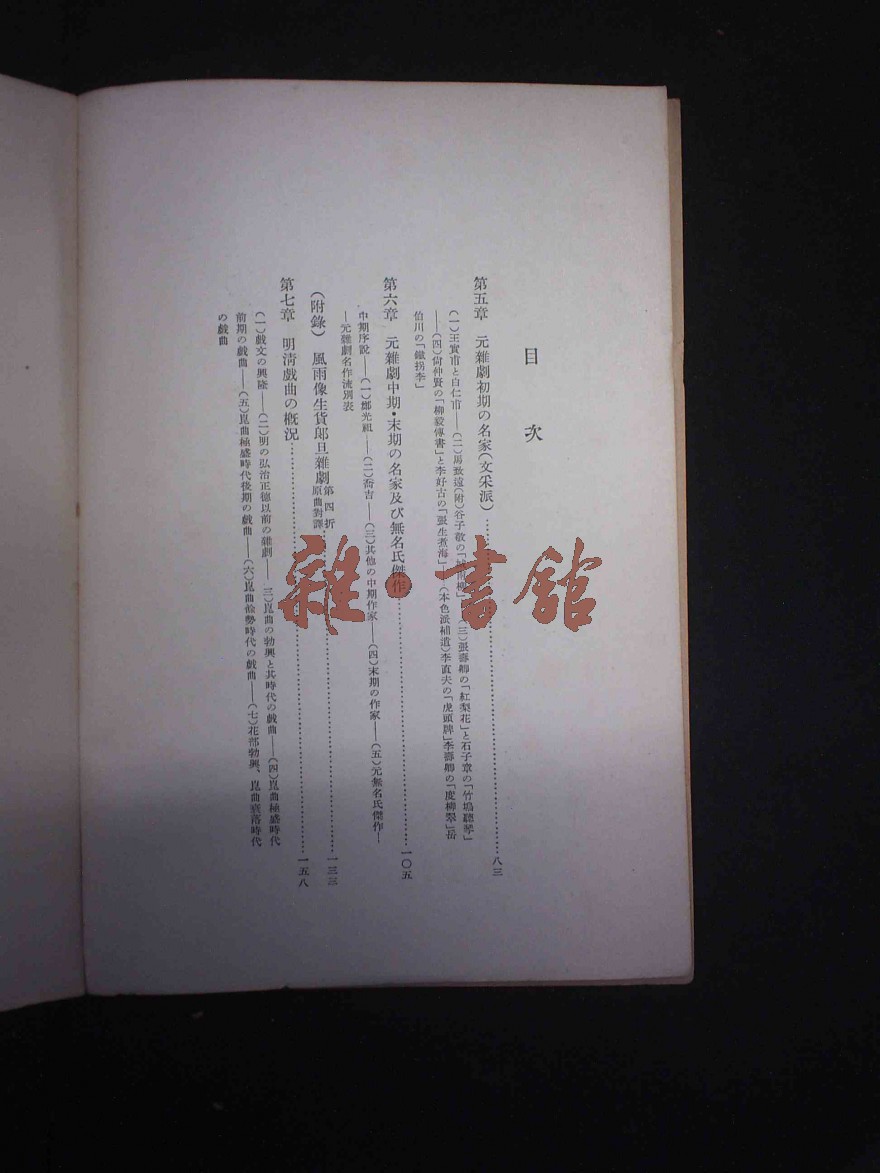 目次
第五章 元雜劇初期の名家(文采派)……八三
(一)王實甫と白仁甫——(二)馬致遠(附)谷子敬の「城南柳」——(三)張壽卿の「紅梨花」と石子章の「竹塢聽琴」
——(四)尙仲賢の「柳毅傳書」と李好古の「張生煮海」——(本色派補遺)李直夫の「虎頭牌」李壽卿の「度柳翠」岳
伯川の「鐵拐李」
第六章 元雜劇中期・末期の名家及び無名氏傑作……一〇五
中期序說——(一)鄭光祖——(二)喬吉——(三)其他の中期作家——(四)末期の作家——(五)元無名氏傑作—
—元雜劇名作流別表
(附錄) 風雨像生貨郎旦雜劇第四折原曲對譯……一三三
第七章 明淸戲曲の槪況……一五八
(一)戲文の興隆——(二)明の弘治正德以前の雜劇——三)崑曲の勃興と其時代の戲曲——(四)崑曲極盛時代
前期の戲曲——(五)崑曲極盛時代後期の戲曲——(六)崑曲餘勢時代の戲曲——(七)花部勃興、崑曲衰落時代
の戲曲
雜·書館